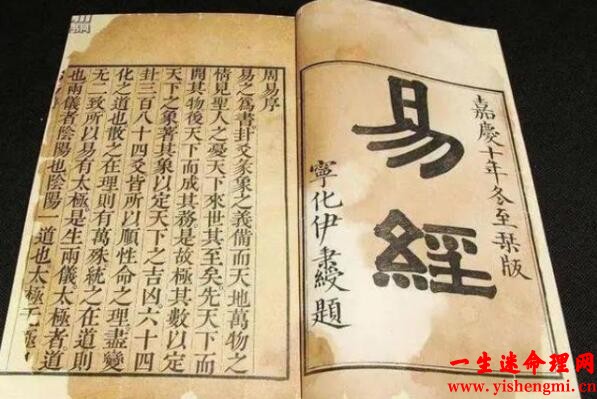 嘉慶十年冬至琹版
易經
寧化伊秉綬題
周易序
易之爲書卦爻彖象之義備而天地萬物之
情見聖人之憂天下來世其至矣先天下而
開其物後天下而成其務是故極其數以定
天下之象著其象以定天下之吉凶六十四
卦三百八十四爻皆所以順性命之理盡變
化之道也散之在理則有萬殊統之在道則
无二致所以易有太極是生兩儀太極者道
也兩儀者陰陽也陰陽一道也太極无極
一生迷命理网
www.yishengmi.cn